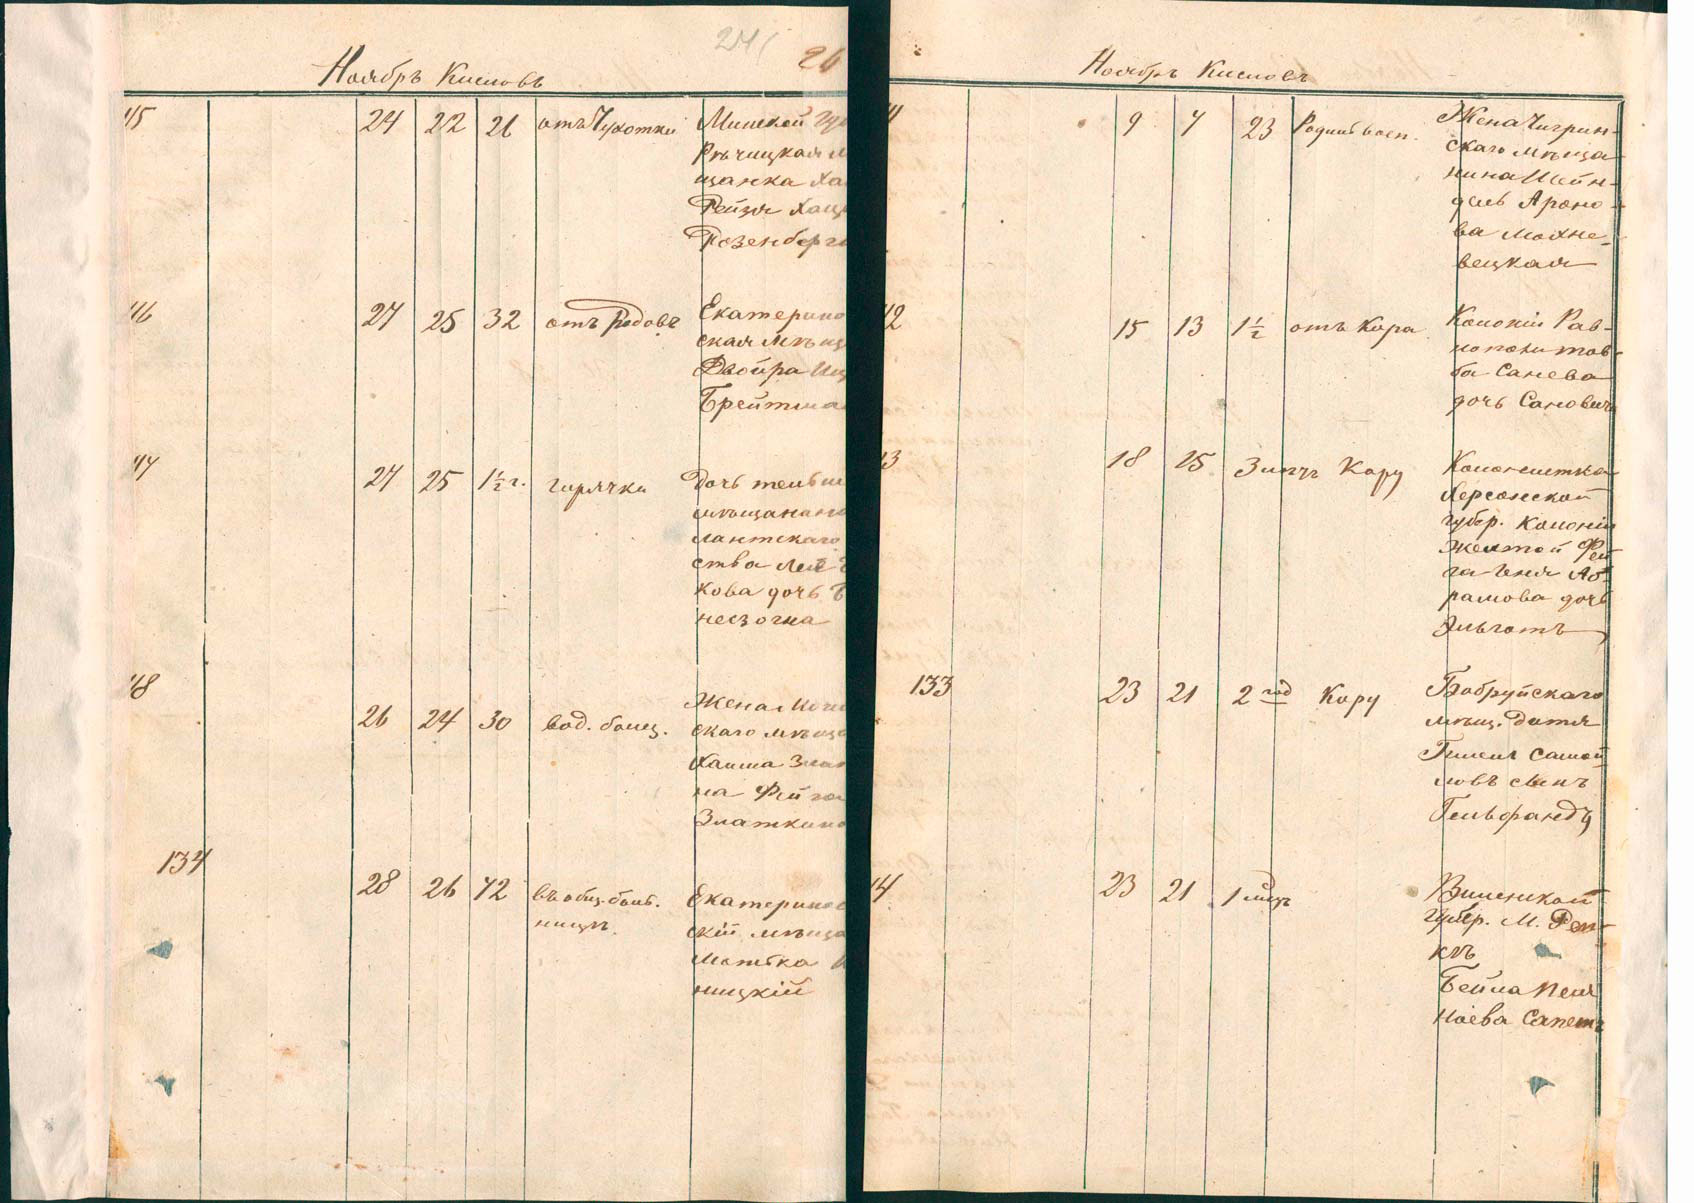 241
26
Ноябрь Кисловъ
115
24 22 21 отъ Чухотки
Минской Гу
Рѣчицкая м
щанка Ха
Рейзя Хац
Розенберг
116
27 25 32 отъ Родовъ
Екатерино
ская мѣщ
Двойра Иц
Брейтма
117
27 25 1½ г. горячки
Дочь тельш
мѣщанина
лантскаго
ства Лея
кова дочь Б
несзочна
118
26 24 30 вод. болез.
Жена Моги
скаго мѣща
Хаима Злат
на Фейга
Златкина
134
28 26 72 въ общ. боль.
ницѣ
Екатерино
скій мѣща
Мотька
ницкій
Ноябрь Кисловъ
9 7 23 Родил. восп.
Жена Чигрин-
скаго мѣща
нина Шейн-
дель Ароно-
ва Махне-
вецкая
12
15 13 1½ отъ Кора
Колонiи Рав-
нополи
Санева
дочь Санович
13
18 15 3 мѣс. Кору
Колонистка
Херсонской
губер. Колонiи
Желтой Фей
га Геня Аб
рамова дочь
133
23 21 2 год Кору
Бобруйскаго
мѣщ. дитя
Гилель Самой
ловъ сынъ
Гельфандъ
14
23 21 1 мѣс.
Виленской
губер. М.
Бейла
Сапет